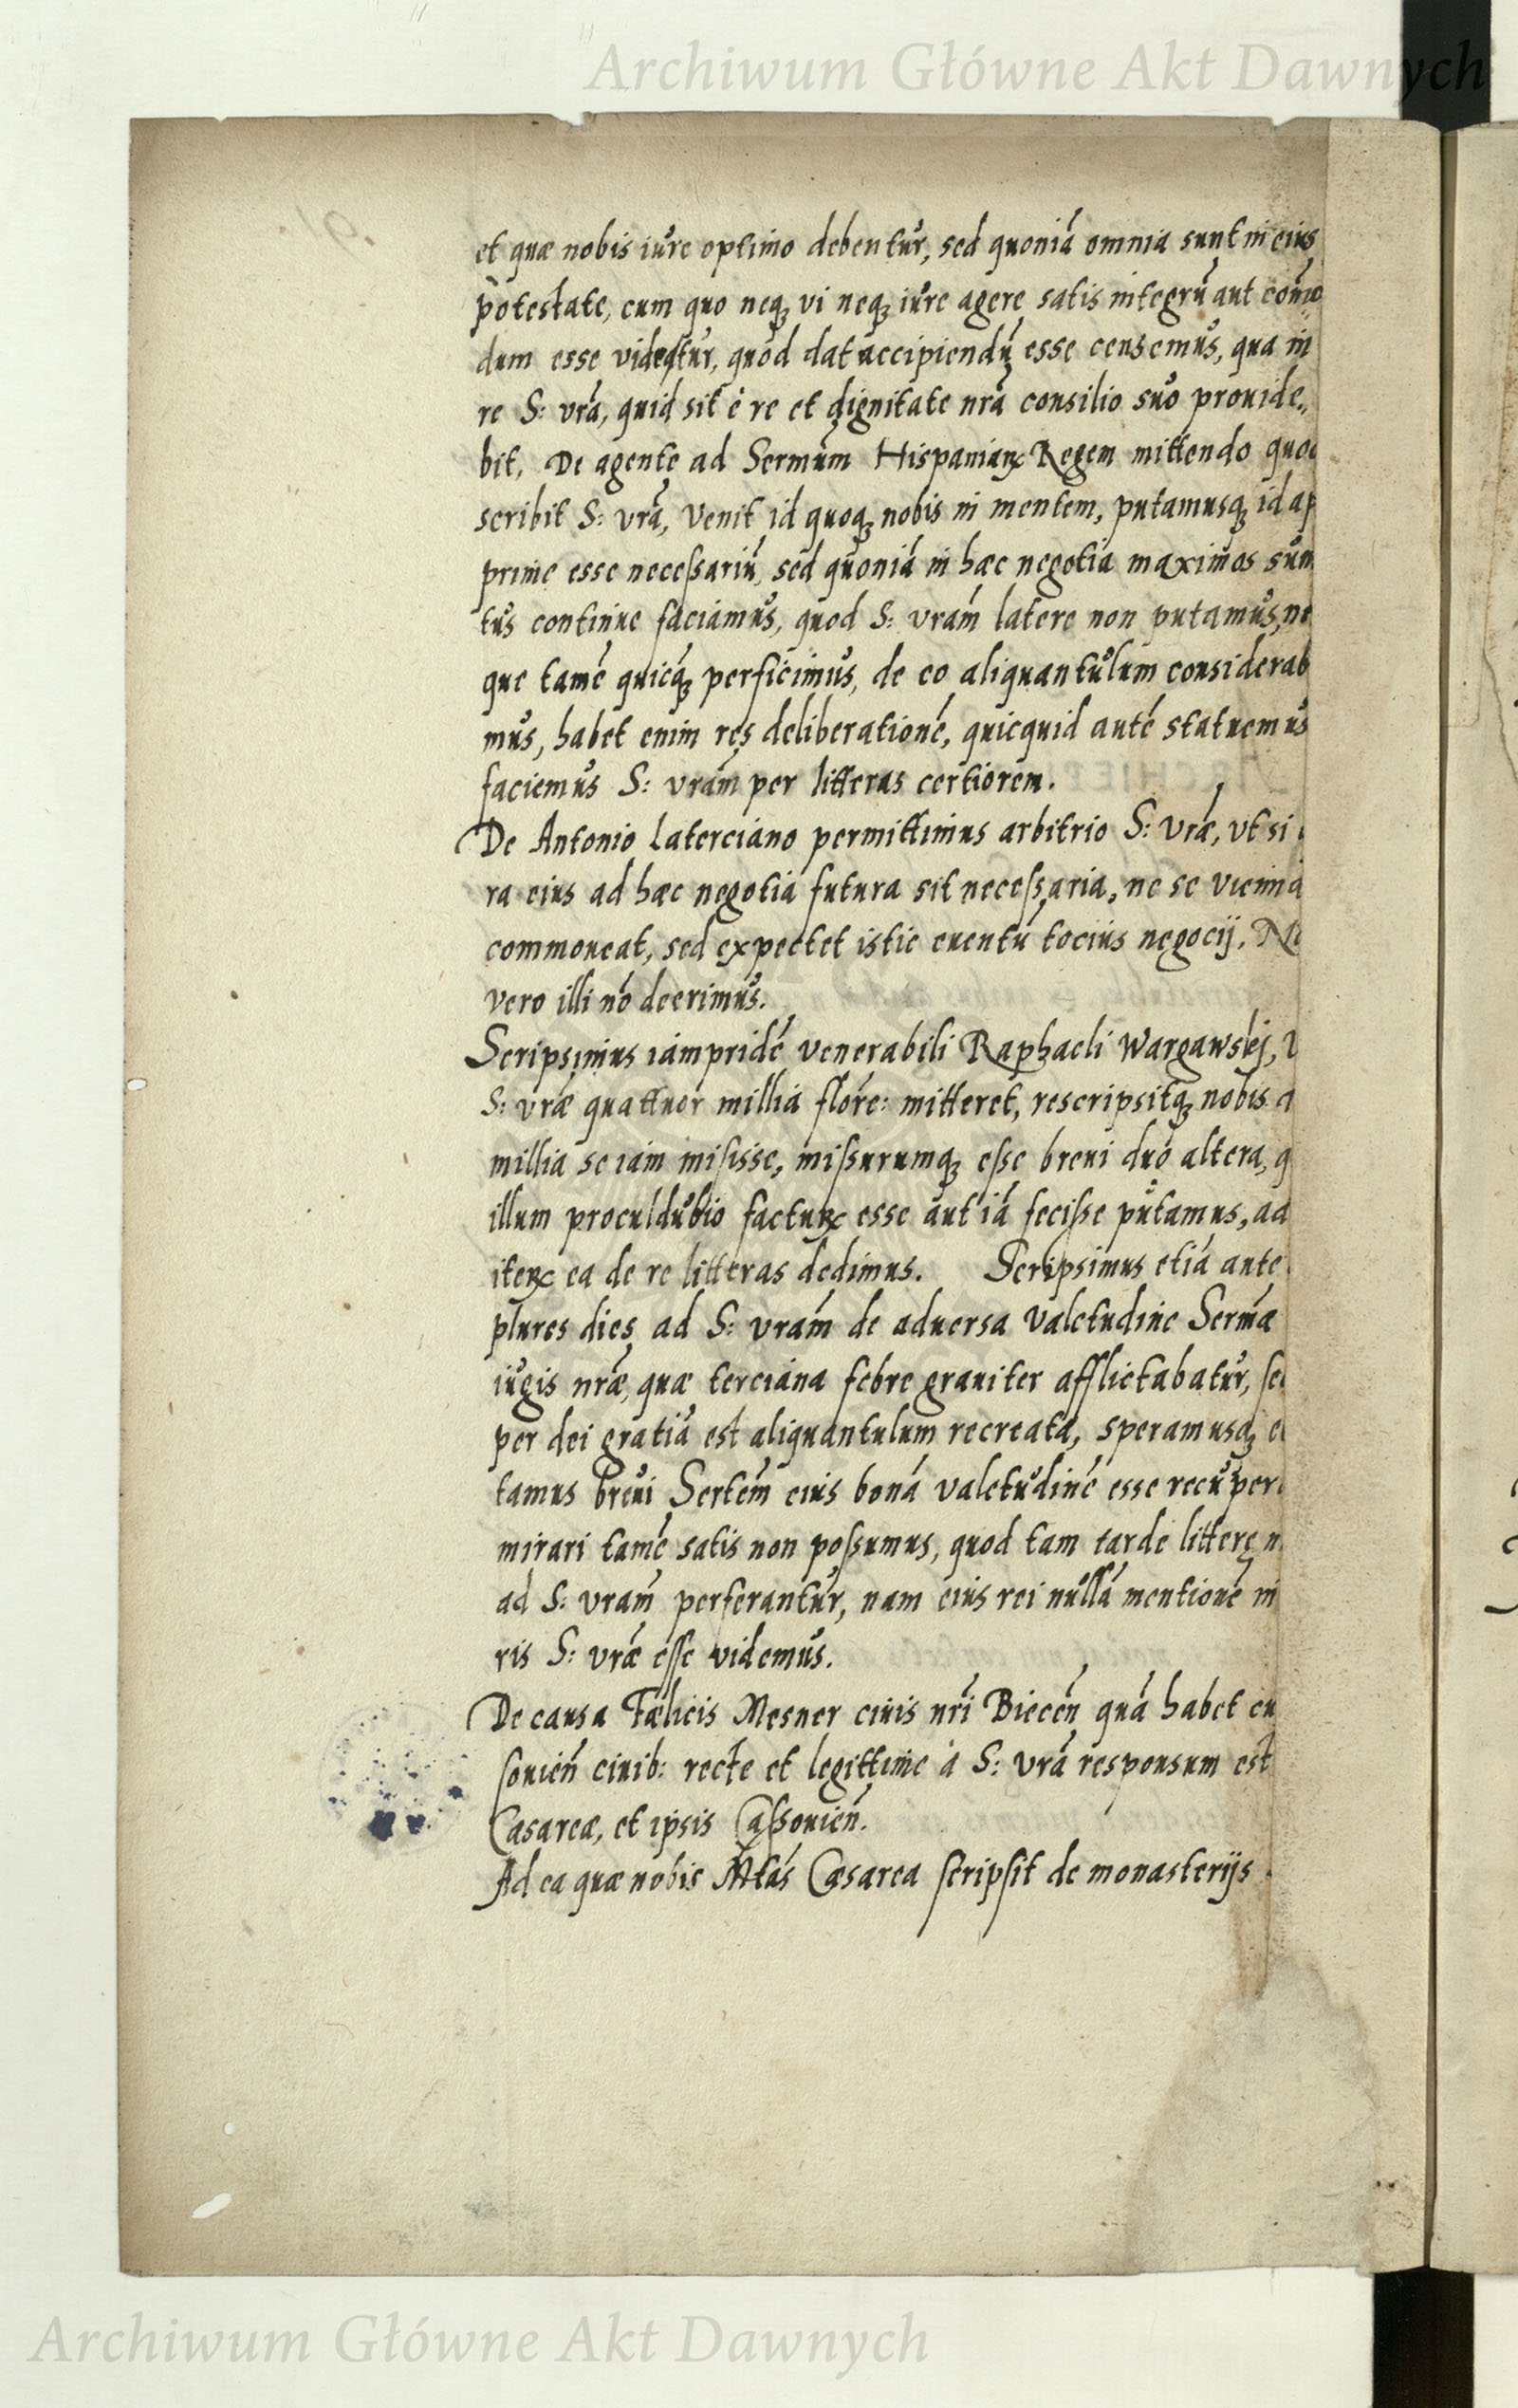 Archiwum Główne Akt Dawnych
et quæ nobis iure optimo debentur, sed quoniā omnia sunt in eius
potestate, cum quo neqꝫ vi neqꝫ iure agere satis integrū aut com̄o
dum esse videatur, quod dat accipiendū esse censemus, qua in
re S: vrā, quid sit è re et dignitate nrā consilio suo prouide„
bit. De agente ad Sermūm Hispaniaꝝ Regem mittendo quod
scribit S: vrā, Venit id quoqꝫ nobis in mentem, putamusqꝫ id ap
prime esse necessariū, sed quoniā in hæc negotia maximos sum
tus continue faciamus, quod S: vrām latere non putamus, ne
que tamē quicqꝫ perficimus, de eo aliquantulum considerab
mus, habet enim res deliberationē, quicquid autē statuemus
faciemus S: vrām per litteras certiorem.
De Antonio Laterciano permittimus arbitrio S: vræ, vt si
ra eius ad hæc negotia futura sit necessaria, ne se vienna
commoueat, sed expectet istic euentū tocius negocij. No
vero illi nō deerimus.
Scripsimus iampridē venerabili Raphaeli Wargawskj, v
S: vræ quattuor millia flore: mitteret, rescripsitqꝫ nobis a
millia se iam misisse, missurumqꝫ esse breui duo altera, q
illum proculdubio factuꝝ esse aut iā fecisse putamus, ad
iteꝝ ea de re litteras dedimus. Scripsimus etiā ante
plures dies ad S: vrām de aduersa valetudine Sermæ
iugis nræ, quæ terciana febre grauiter afflictabatur, sed
per dei gratiā est aliquantulum recreata, speramusqꝫ et
tamus breui Sertēm eius bonā valetudinē esse recuper
mirari tamē satis non possumus, quod tam tarde littere n
ad S: vrām perferantur, nam eius rei nullā mentionē in
ris S: vræ esse videmus.
De causa Fælicis Mesner ciuis nrī Biecēn quā habet cu
souień ciuib: recte et legittime à S: vrā responsum est
Cæsareæ, et ipsis Cassouień.
Ad ea quæ nobis Mtās Cæsarea scripsit de monasterijs
Archiwum Główne Akt Dawnych